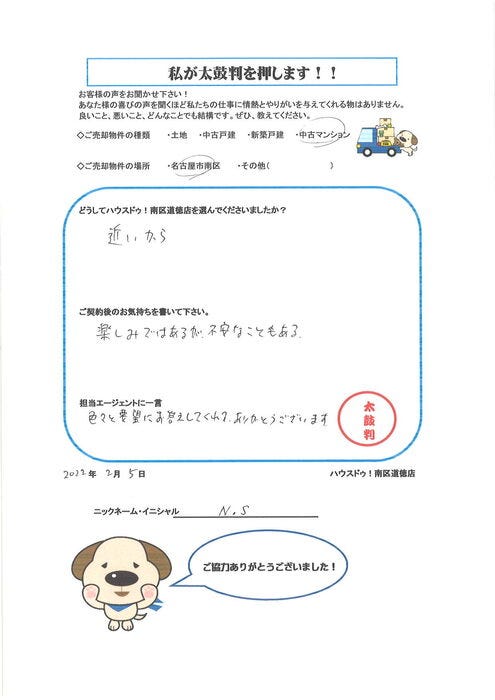 私が太鼓判を押します！！
お客様の声をお聞かせ下さい！
あなた様の喜びの声を聞くほど私たちの仕事に情熱とやりがいを与えてくれる物はありません。
良いこと、悪いこと、どんなことでも結構です。ぜひ、教えてください。
◇ご売却物件の種類　・土地　・中古戸建　・新築戸建　・中古マンション
◇ご売却物件の場所　・名古屋市南区　・その他(　　　　　　)
どうしてハウスドゥ！南区道徳店を選んでくださいましたか？
近いから
ご契約後のお気持ちを書いて下さい。
楽しみではあるが、不安なこともある。
担当エージェントに一言
色々と要望にお答えしてくれて、ありがとうございます
太鼓判
2022年 2月 5日
ハウスドゥ！南区道徳店
ニックネーム・イニシャル　N.S
ご協力ありがとうございました！